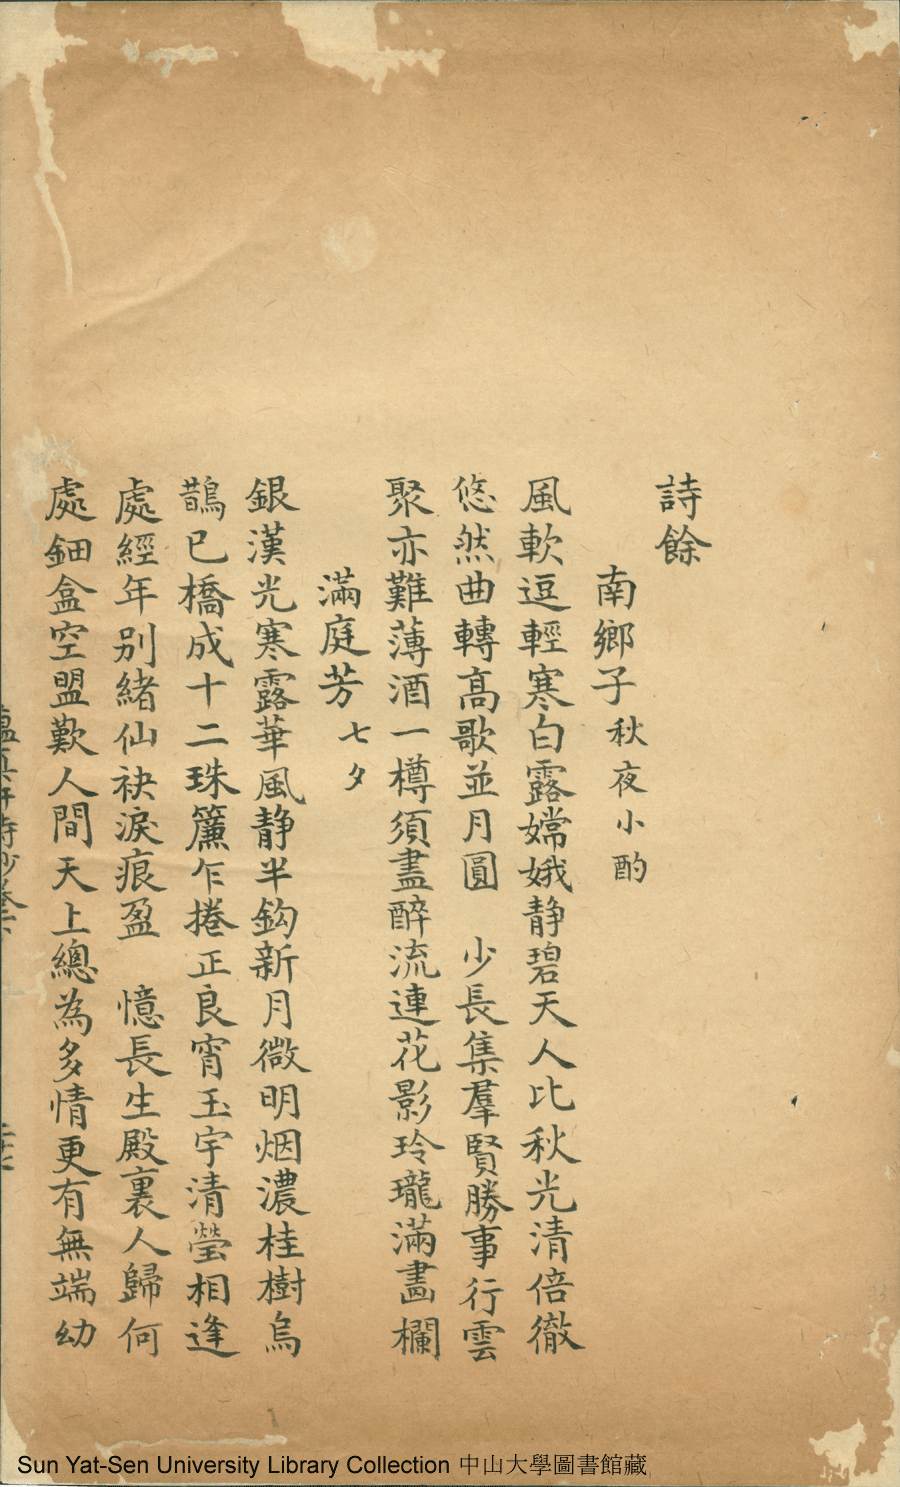 詩餘
南鄉子 秋夜小酌
風軟逗輕寒白露嫦娥静碧天人比秋光清倍徹
悠然曲轉高歌並月圓　少長集羣賢勝事行雲
聚亦難薄酒一樽須盡醉流連花影玲瓏滿畫欄
滿庭芳 七夕
銀漢光寒露華風静半鈎新月微明烟濃桂樹烏
鵲已橋成十二珠簾乍捲正良宵玉宇清瑩相逢
處經年别緒仙袂淚痕盈　憶長生殿裏人歸何
處鈿盒空盟歎人間天上總為多情更有無端幼
Sun Yat-Sen University Library Collection 中山大學圖書館藏